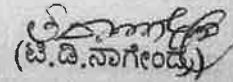 (ಟಿ.ಡಿ.ನಾಗೇಂದ್ರ)